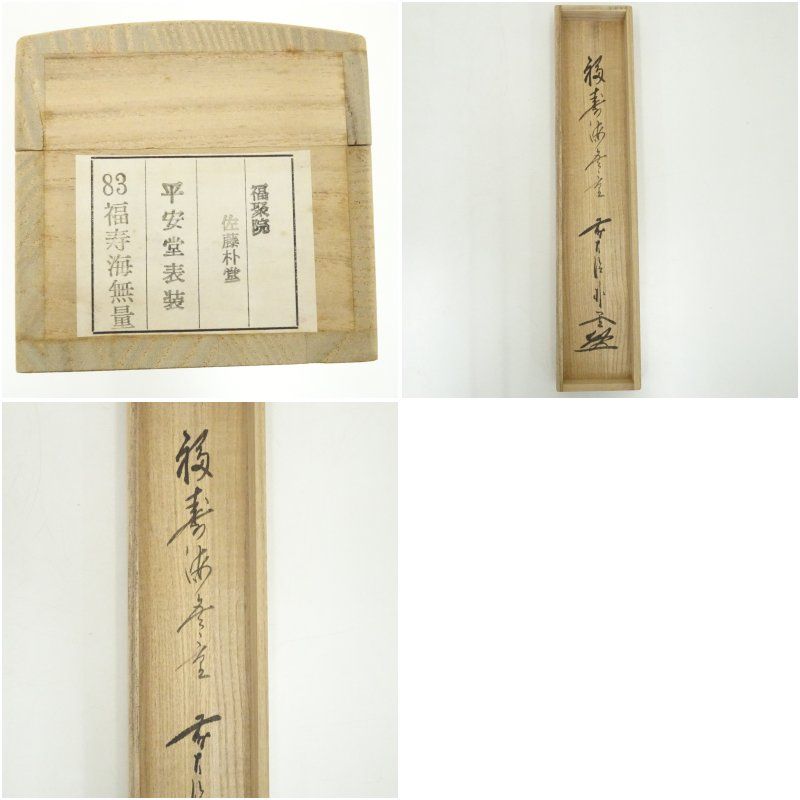 福聚院
佐藤朴堂
平安堂表装
83福寿海無量
福寿海無量
福寿海無量